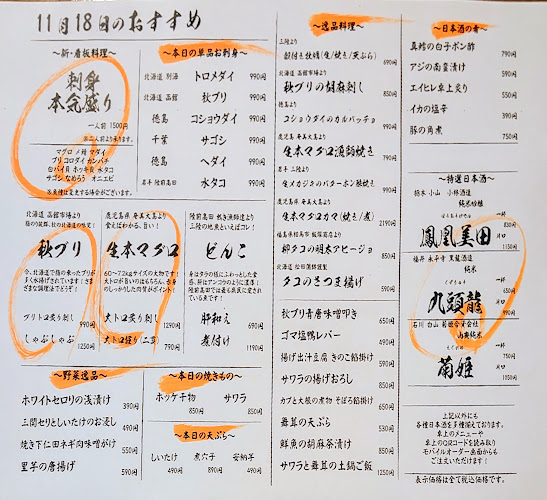 11月18日のおすすめ
～新・看板料理～
刺身
本気盛り
一人前 1500円
※二人前より承ります。
マグロ メ鯖 マダイ
ブリ コロダイ カンパチ
白バイ貝 ホッキ貝 水タコ
サゴシ なめろう オニエビ
※魚種は変更する場合がございます。
～本日の単品お刺身～
北海道 別海 トロメダイ 990円
北海道 函館 秋ブリ 890円
徳島 コショウダイ 890円
千葉 サゴシ 790円
徳島 ヘダイ 790円
岩手 陸前高田 水タコ 890円
北海道 函館市場より
脂の乗り抜群、秋の北海道の味覚!
秋ブリ
今、北海道で脂の乗ったブリが
多く水揚げされています!さま
ざまな調理法でどうぞ!
ブリトロ炙り刺し 890円
しゃぶしゃぶ 1250円
鹿児島県 奄美大島より
食えばわかる、旨い!
生本マグロ
60～72kgサイズの大物です!
大トロが旨いのはもちろん、赤身
のしっかりした肉質がポイント!
大トロ炙り刺し 1290円
大トロ握り(二貫) 790円
陸前高田 抜き漁師達より
三陸の地魚といえばコレ!
どんこ
身はタラの様にふわっとした食
感、肝はアンコウのように濃厚!
陸前高田では最も庶民に愛され
ている魚です!
肝和え 690円
煮付け 1190円
～野菜逸品～
ホワイトセロリの浅漬け 390円
三関セリとしいたけのお浸し 490円
焼き下仁田ネギ肉味噌がけ 550円
里芋の唐揚げ 590円
～本日の焼きもの～
ホッケ干物 850円
サワラ 850円
～本日の天ぷら～
しいたけ 490円
煮穴子 890円
安納芋 490円
～逸品料理～
三陸より
殻付き牡蠣(生/焼き/天ぷら) 690円
北海道 函館市場より
秋ブリの胡麻刺し 850円
徳島より
コショウダイのカルパッチョ 990円
鹿児島県 奄美大島より
生本マグロ漁師焼き 790円
岩手 三陸より
生メカジキのバターポン酢焼き 990円
鹿児島県 奄美大島より
生本マグロカマ(焼き/煮) 2190円
福島県相馬市 飯塚商店より
卵タコの明太アヒージョ 1350円
北海道 松田蒲鉾謹製
タコのさつま揚げ 590円
秋ブリ青唐味噌叩き 650円
ゴマ塩鴨レバー 450円
揚げ出汁豆腐 きのこ餡掛け 650円
サワラの揚げおろし 850円
カブと大根の煮物 そぼろ餡掛け 650円
舞茸の天ぷら 530円
鮮魚の胡麻茶漬け 850円
サワラと舞茸の土鍋ご飯 1250円
～日本酒の肴～
真鱈の白子ポン酢 790円
アジの南蛮漬け 590円
エイヒレ卓上炙り 550円
イカの塩辛 390円
豚の角煮 750円
～特選日本酒～
栃木 小山 小林酒造
純米吟醸
鳳凰美田
一杯 850円
片口 1150円
福井 永平寺 黒龍酒造
純米
九頭龍
一杯 650円
片口 990円
石川 白山 菊姫合資会社
山廃純米
菊姫
一杯 650円
片口 990円
上記以外にも
各種日本酒を多種揃えております。
卓上のメニューや
卓上のQRコードを読み取り
モバイルオーダー画面からも
ご注文いただけます!
表示価格は全て税込価格です。